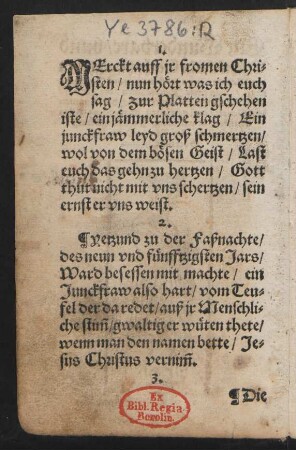 Ye 3786:R
1.
MErckt auff jr fromen Chri-
sten / nun hört was ich euch
sag / zur Platten gschehen
iste / ein jämmerliche klag / Ein
junckfraw leyd groß schmertzen /
wol von dem bösen Geist / Last
euch das gehn zu hertzen / Gott
thut nicht mit vns schertzen / sein
ernst er vns weist.
2.
¶Yetzund zu der Faßnachte /
des neun vnd fünfftzigsten Jars /
Ward besessen mit machte / ein
Junckfraw also hart / vom Teu-
fel der da redet / auß jr Menschli-
che stim̃ / gwaltiger wüten thete /
wenn man den namen bette / Je-
sus Christus vernim̃.
3.
¶Die
Ex
Bibl. Regia
Berolin.